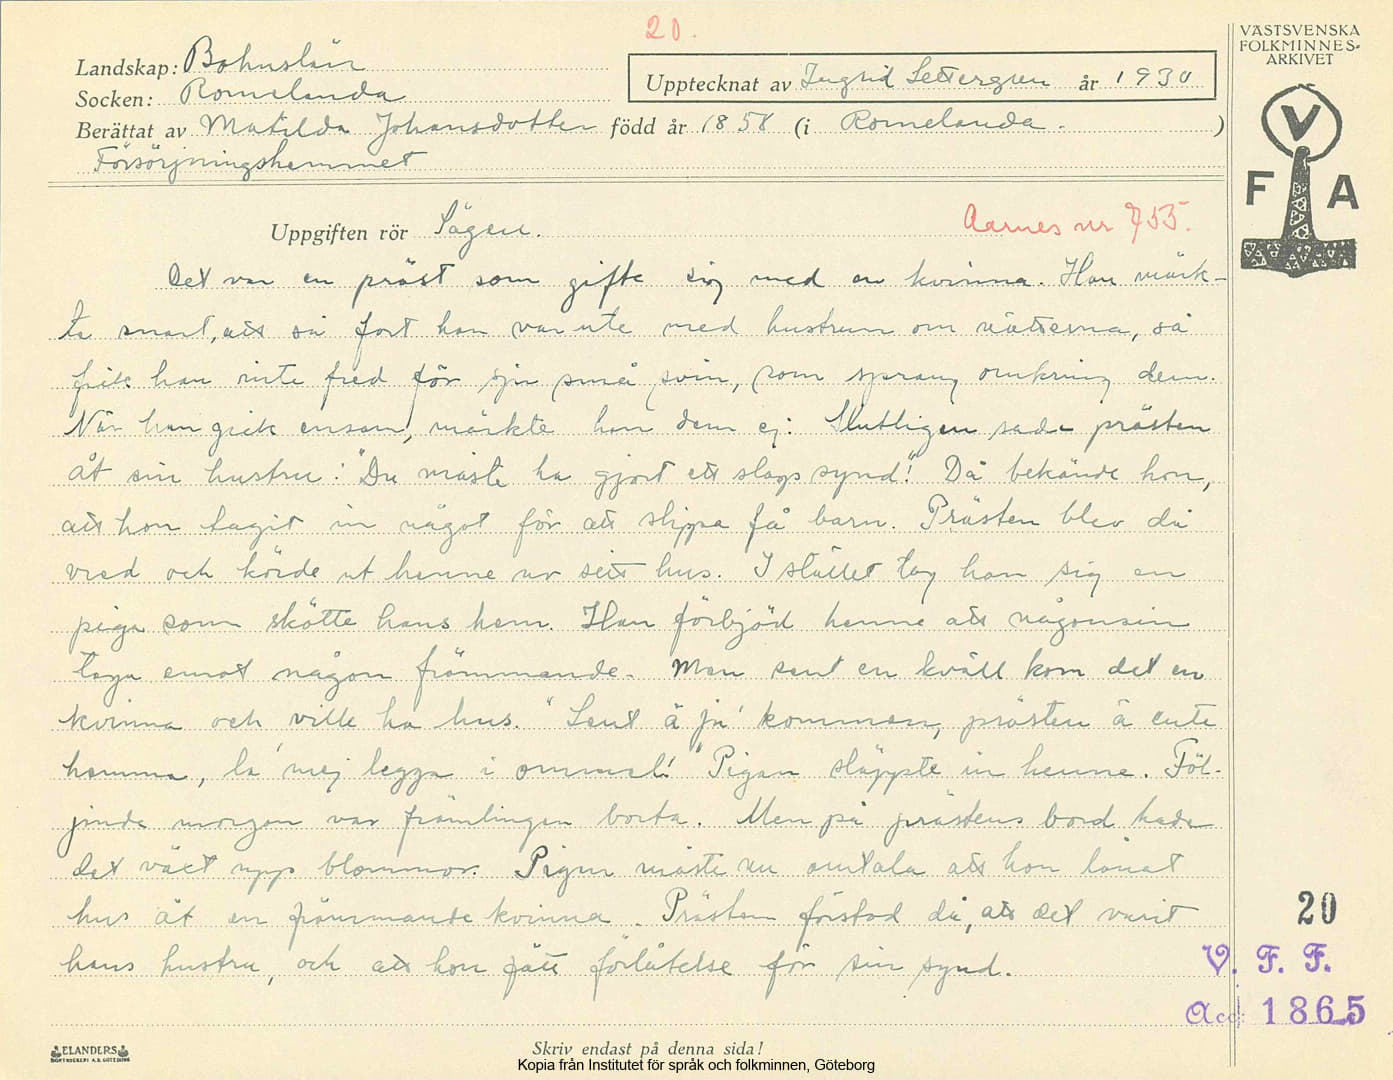 20.
VÄSTSVENSKA
FOLKMINNES-
ARKIVET
Landskap: Bohuslän
Upptecknat av Ingrid Settergren år 1930
Socken: Romelanda
Berättat av Matilda Johansdotter född år 1858 (i Romelanda. )
Försörjningshemmet
V
F A
Uppgiften rör Sägen.
Aarnes nr 755.
Det var en präst som gifte sig med en kvinna. Han märk-
te snart, att så fort han var ute med hustrun om nätterna, så
fick han inte fred för sju små svin, som sprang omkring dem.
När han gick ensam, märkte han dem ej. Slutligen sade prästen
åt sin hustru: "Du måste ha gjort ett slags synd!" Då bekände hon,
att hon tagit in något för att slippa få barn. Prästen blev då
vred och körde ut henne ur sitt hus. I stället tog han sig en
piga som skötte hans hem. Han förbjöd henne att någonsin
taga emot någon främmande. Men sent en kväll kom det en
kvinna och ville ha hus. "Sent ä ja' kommen, prästen ä ente
hemma, la' mej legga i ommal!" Pigan släppte in henne. Föl-
jande morgon var främlingen borta. Men på prästens bord hade
det växt upp blommor. Pigan måste nu omtala att hon lånat
hus åt en främmande kvinna. Prästen förstod då, att det varit
hans hustru, och att hon fått förlåtelse för sin synd.
20
V. F. F.
Acc: 1865
ELANDERS
BOKTRYCKERI A.B. GÖTEBORG
Skriv endast på denna sida!
Kopia från Institutet för språk och folkminnen, Göteborg